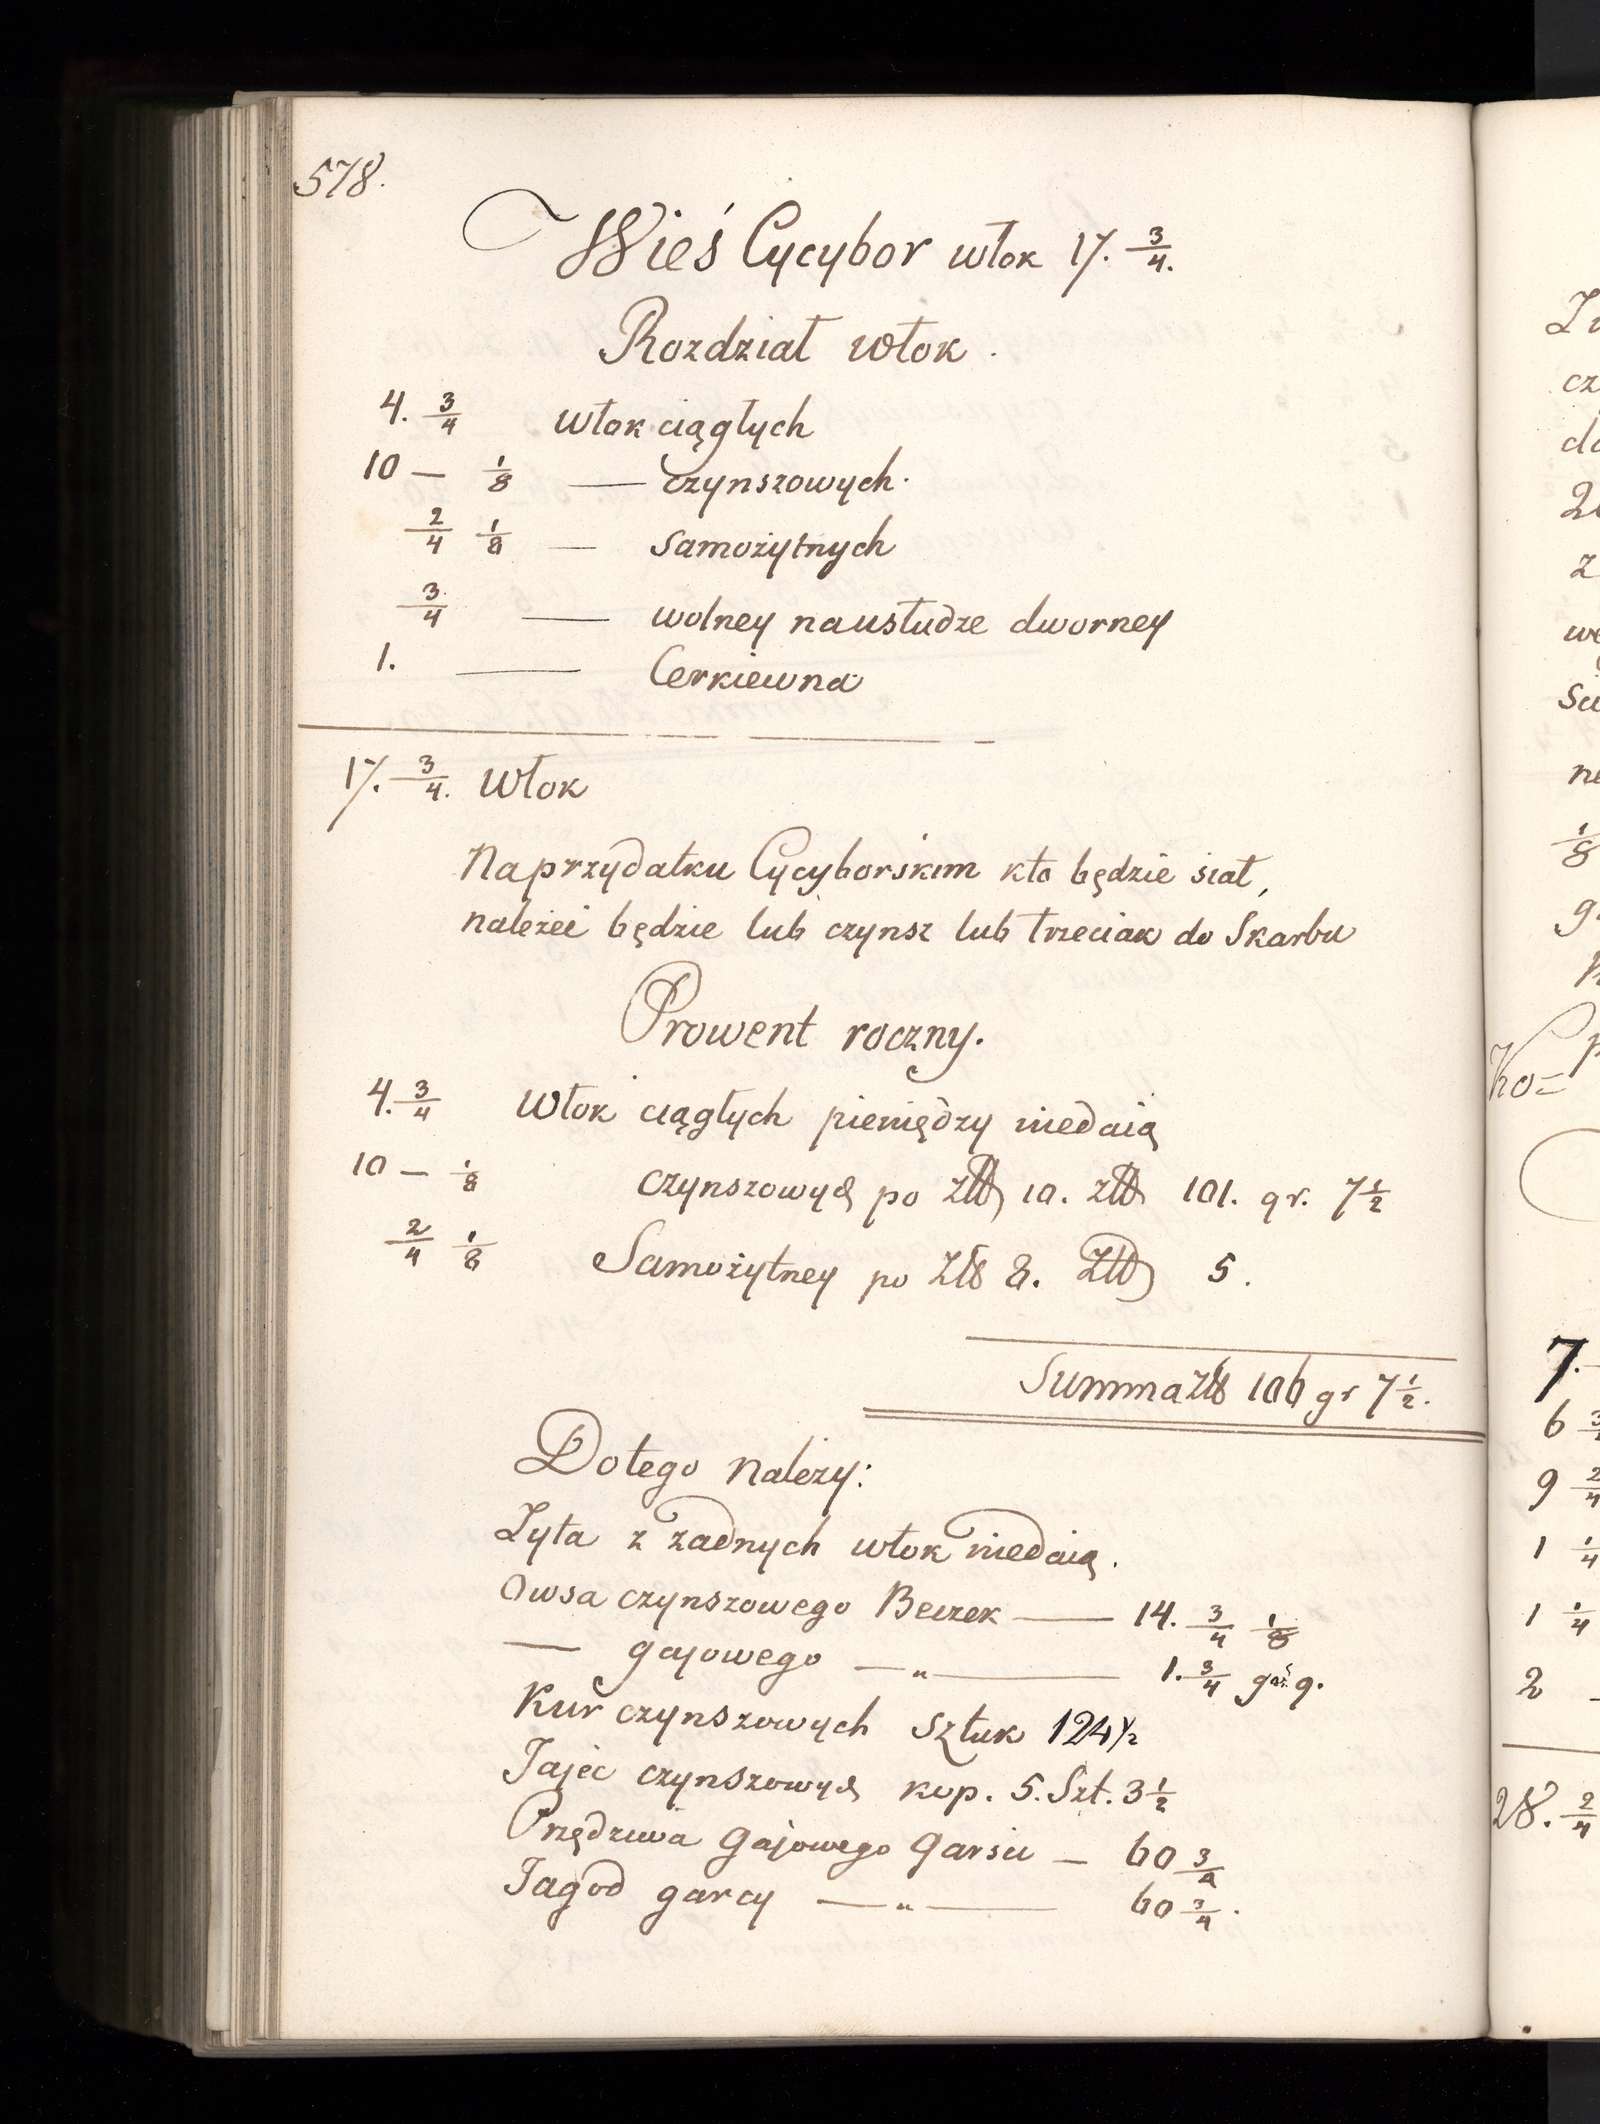 578.
Wieś Cycybor włok 17. 3/4.
Rozdział włok.
4. 3/4 włok ciągłych
10 — 1/8 — czynszowych.
2/4 1/8 — samożytnych
3/4 — wolney nausłudze dworney
1. — Cerkiewna
17. 3/4. Włok
Naprzydatku Cycyborskim kto będzie siał,
należeć będzie lub czynsz lub trzeciak do Skarbu
Prowent roczny.
4. 3/4 Włok ciągłych pieniędzy niedaią
10 — 1/8 czynszowych po zł 10. zł 101. gr. 7 1/2
2/4 1/8 Samożytney po Zł 8. Zł 5.
Summa Zł 106 gr 7 1/2.
Dotego należy:
Zyta z żadnych włok niedaią.
Owsa czynszowego Beczek — 14. 3/4 1/8
— gajowego — „ — 1. 3/4 gar. 9.
Kur czynszowych sztuk 124 1/2
Jajec czynszowych kop. 5. Szt. 3 1/2
Przędziwa Gajowego Garści — 60 3/4
Jagod garcy — „ — 60 3/4.